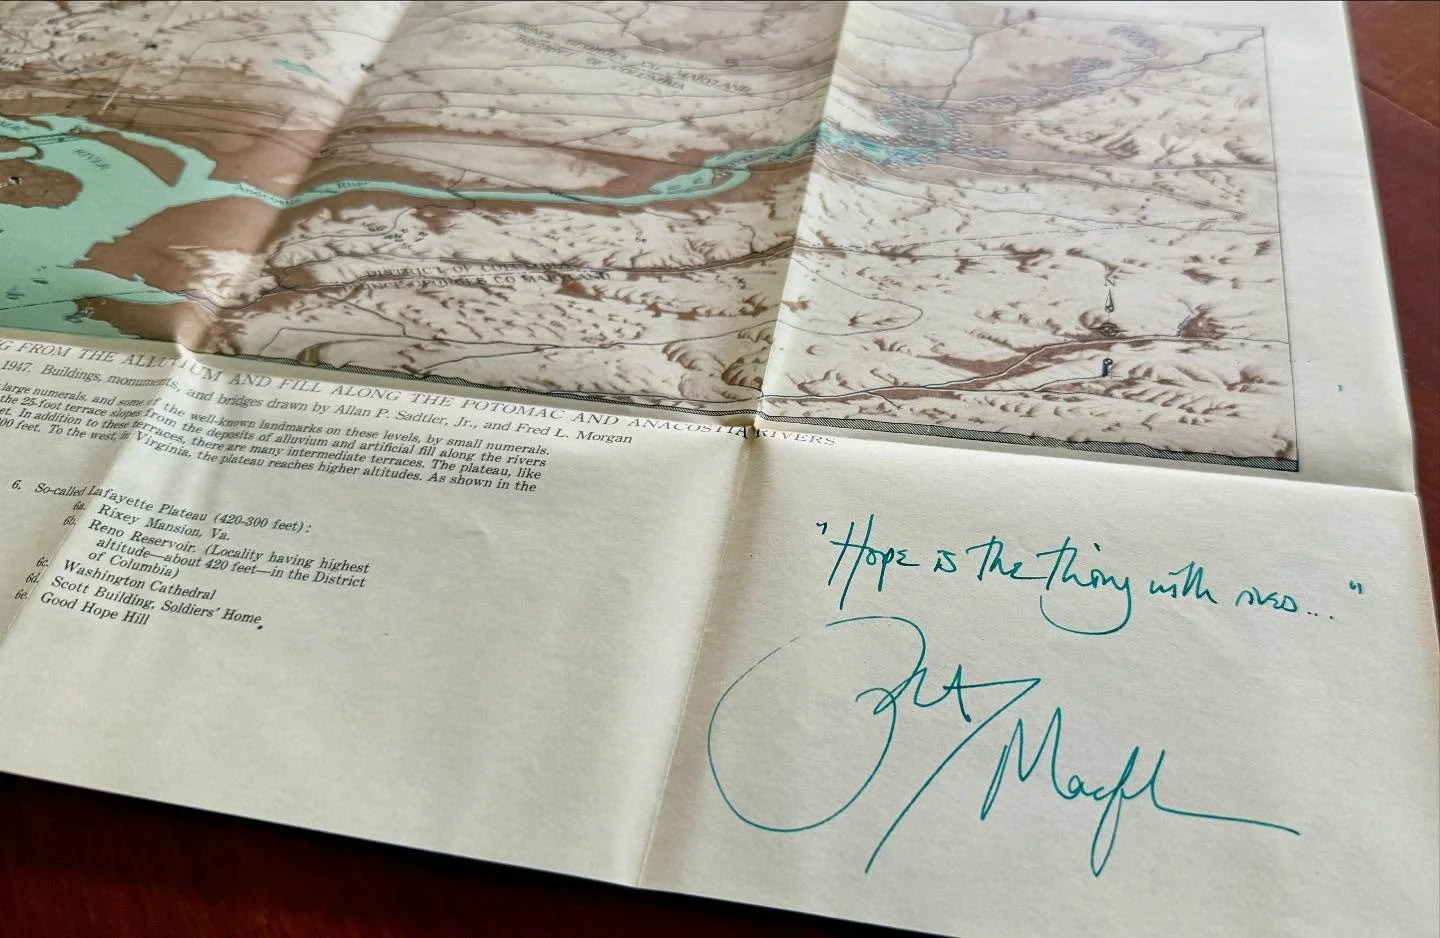 PRINCE GEORGES CO MARYLAND
DISTRICT OF COLUMBIA
RIVER
Anacostia River
DISTRICT OF COLUMBIA
PRINCE GEORGES CO MARYLAND
N
G FROM THE ALLUVIUM AND FILL ALONG THE POTOMAC AND ANACOSTIA RIVERS
1947. Buildings, monuments, and bridges drawn by Allan P. Sadtler, Jr., and Fred L. Morgan
large numerals, and some of the well-known landmarks on these levels, by small numerals.
the 25-foot terrace slopes from the deposits of alluvium and artificial fill along the rivers
et. In addition to these terraces, there are many intermediate terraces. The plateau, like
00 feet. To the west, in Virginia, the plateau reaches higher altitudes. As shown in the
6. So-called Lafayette Plateau (420-300 feet):
6a. Rixey Mansion, Va.
6b. Reno Reservoir. (Locality having highest
altitude—about 420 feet—in the District
of Columbia)
6c. Washington Cathedral
6d. Scott Building, Soldiers' Home
6e. Good Hope Hill
"Hope is the thing with rivers..."